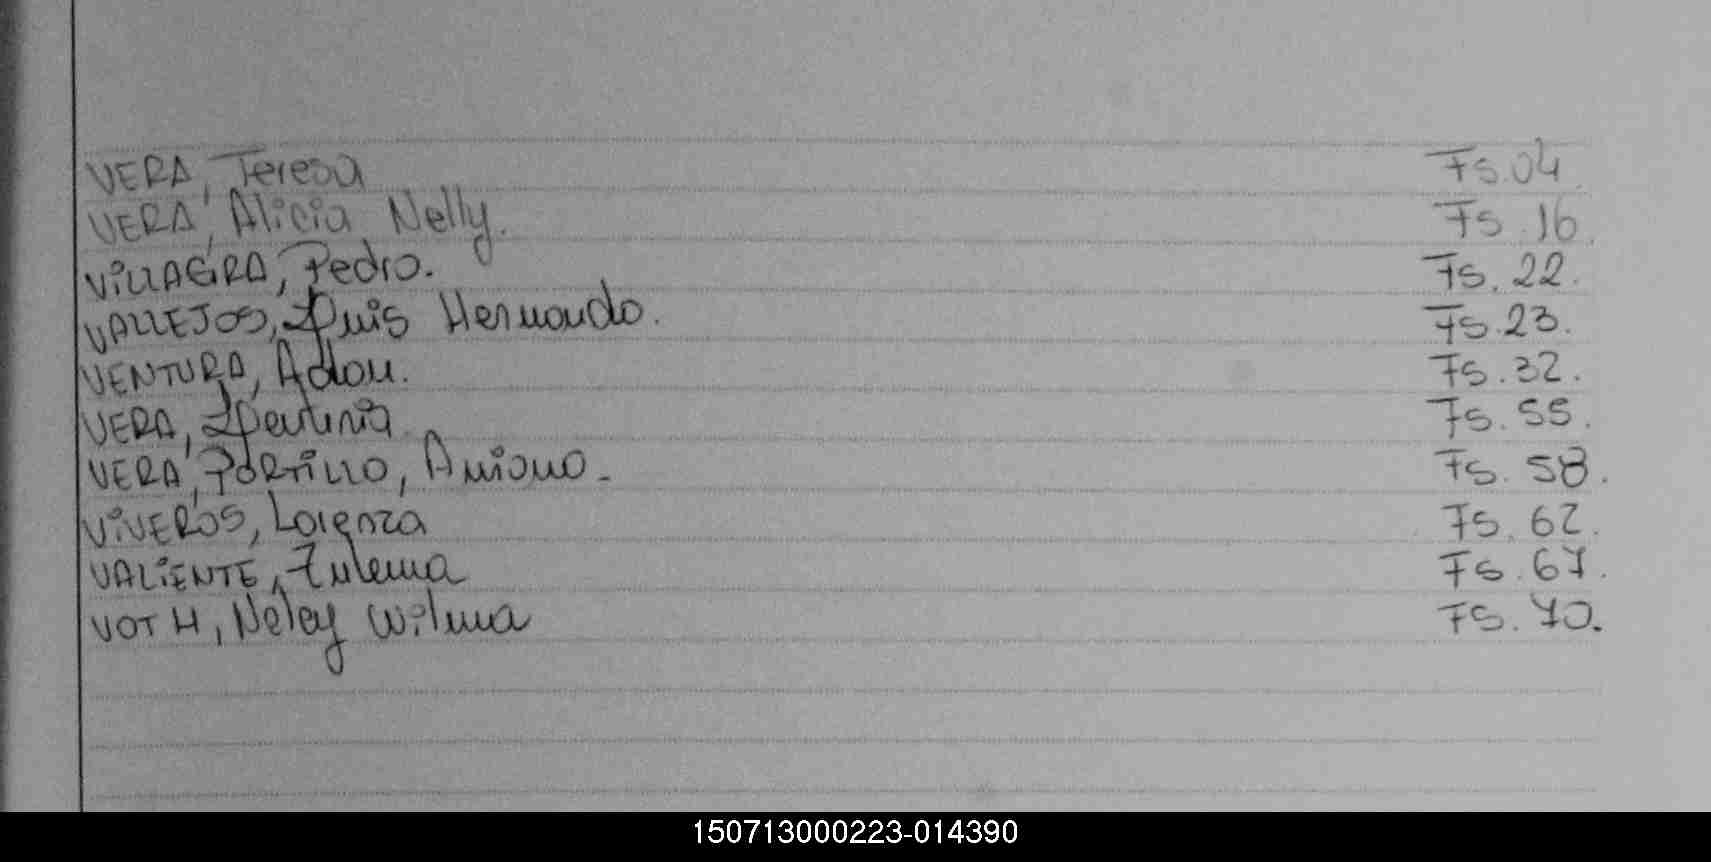 VERA, Teresa Fs.04
VERA, Alicia Nelly. Fs. 16.
ViLLAGRA, Pedro. Fs. 22.
VALLEJOS, Luis Hernando. Fs. 23.
VENTURA, Adan. Fs. 32.
VERA, Fs. 55.
VERA PORTiLLO, Aniano. Fs. 58.
ViVEROS, Lorenza Fs. 62.
VALiENTE, Zulema Fs. 67.
VOTH, Neley Wilma Fs. 70.
150713000223-014390